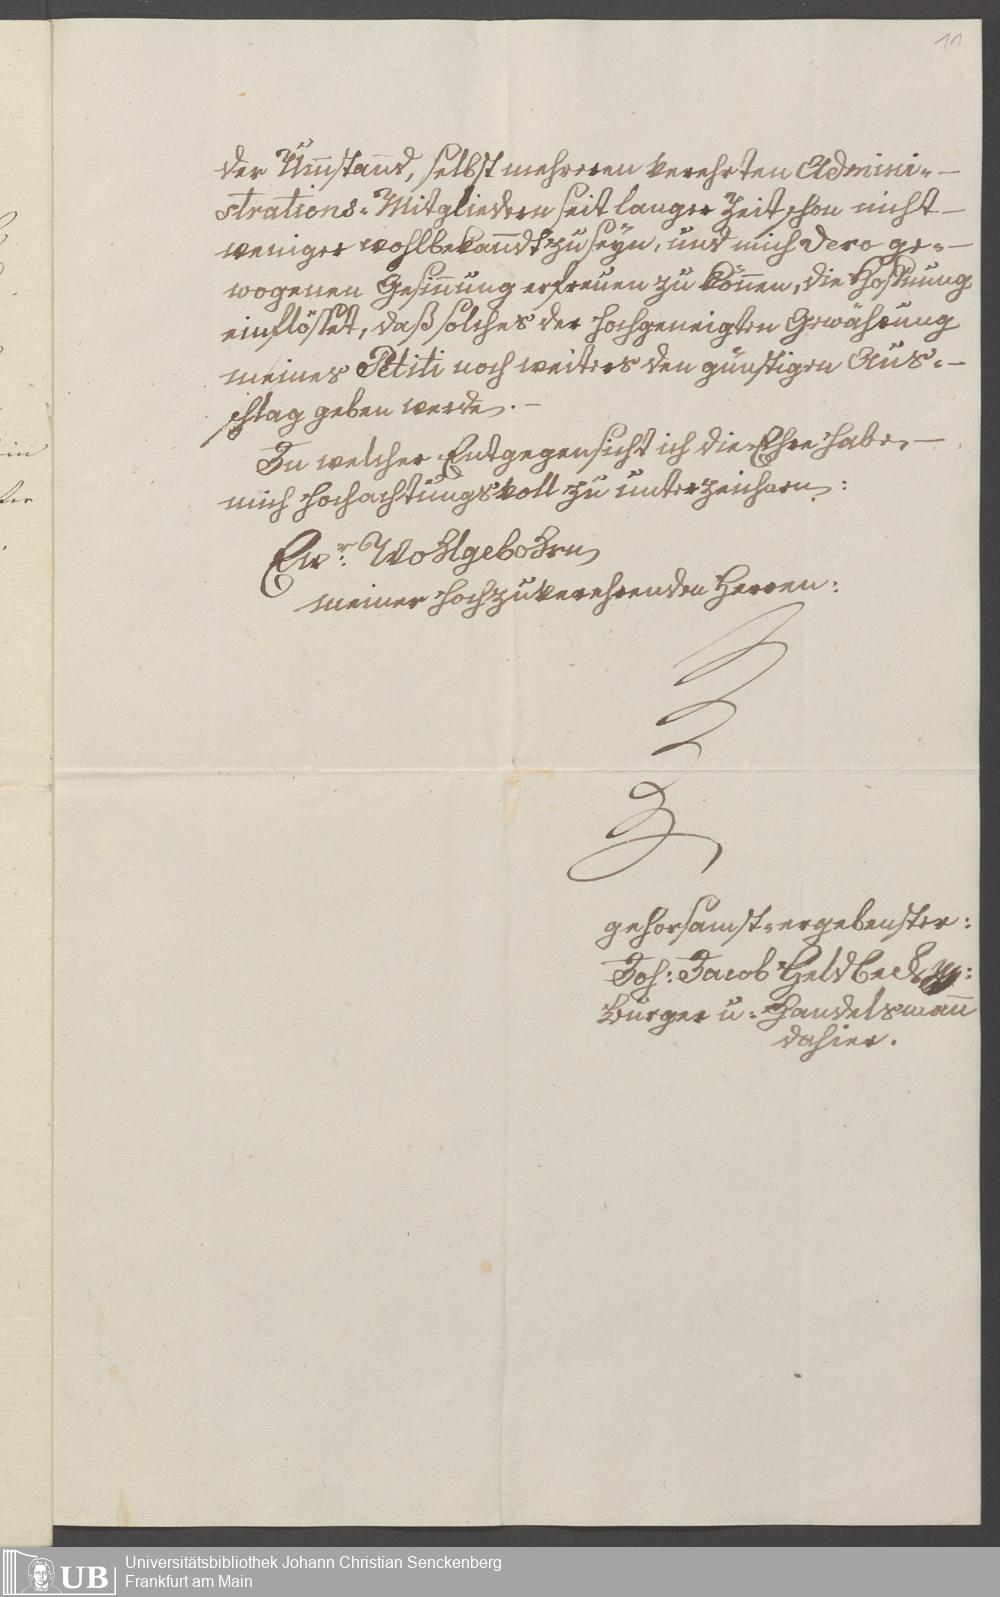 11
der Um̅stan̅d, selbst mehreren verehrten Admini=
strations=Mitgliedern seit langer Zeit schon nicht
weniger wohlbekan̅dt zu seÿn, und mich dero ge=
wogenen Gesin̅ung erfreuen zu kön̅en, die Hoffnung
einflösset, daß solches der hochgeneigten Gewährung
meines Petiti noch weiters den günstigen Aus=
schlag geben werde. –
In welcher Entgegensicht ich die Ehre habe,
mich hochachtungsvoll zu unterzeichnen:
Ewr. Wohlgebohrn
meiner hochzuverehrenden Herren:
gehorsamst=ergebenster:
Joh: Jacob
Burger u: Handelsman̅
dahier.
in
Universitätsbibliothek Johann Christian Senckenberg
Frankfurt am Main
UB